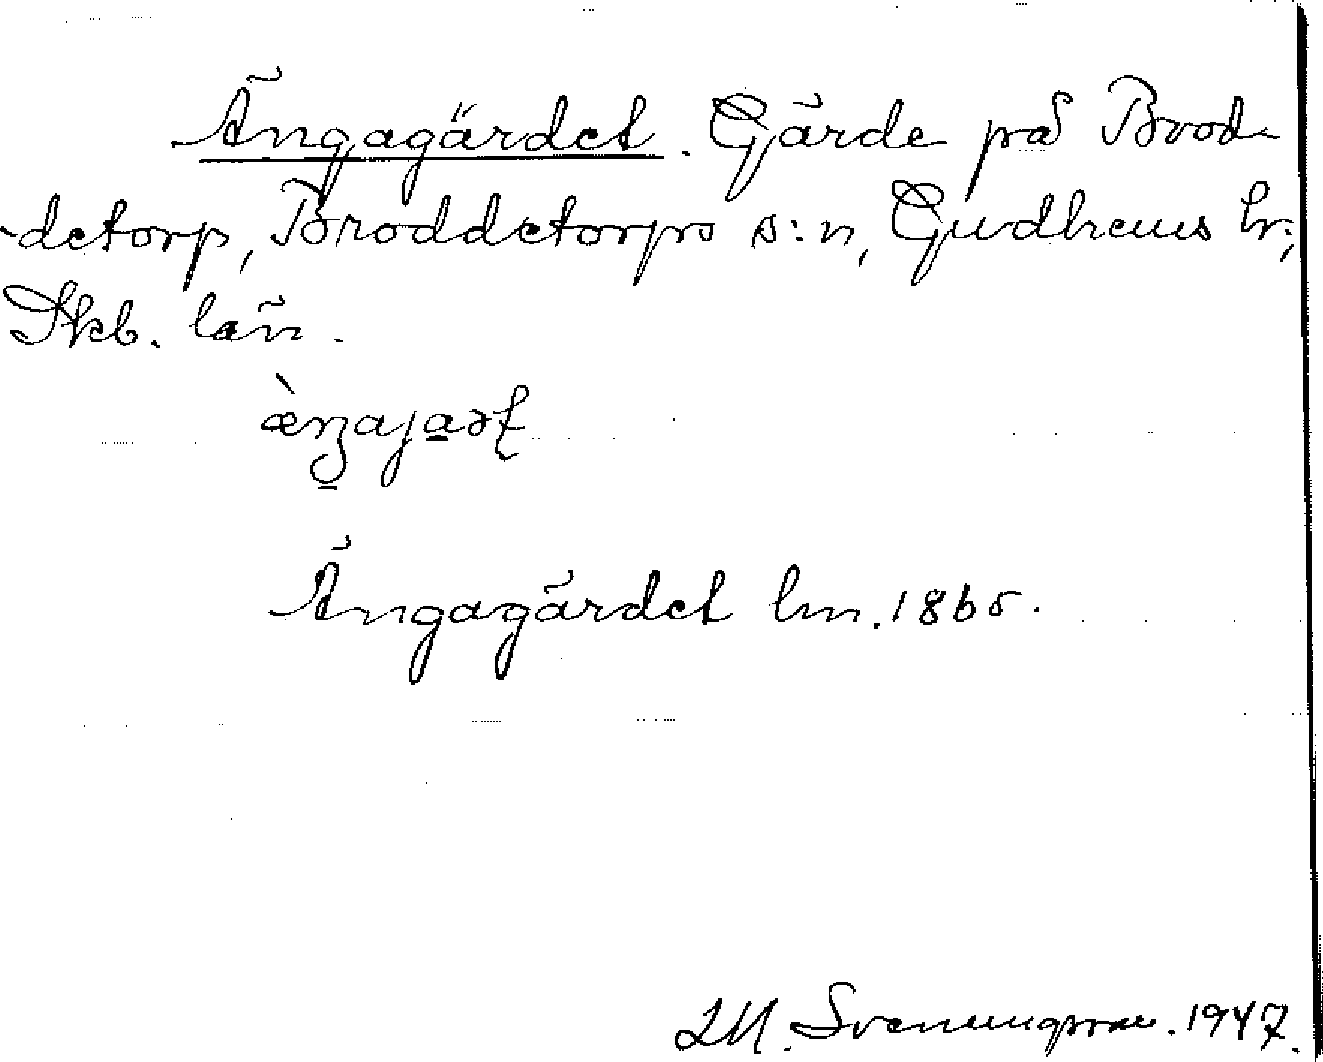 Ängagärdet. Gärde på Brod-
detorp, Broddetorps s:n, Gudhems hr;
Skb. län.
Ängagärdet lm. 1865.
M. Svenungsson. 1947.